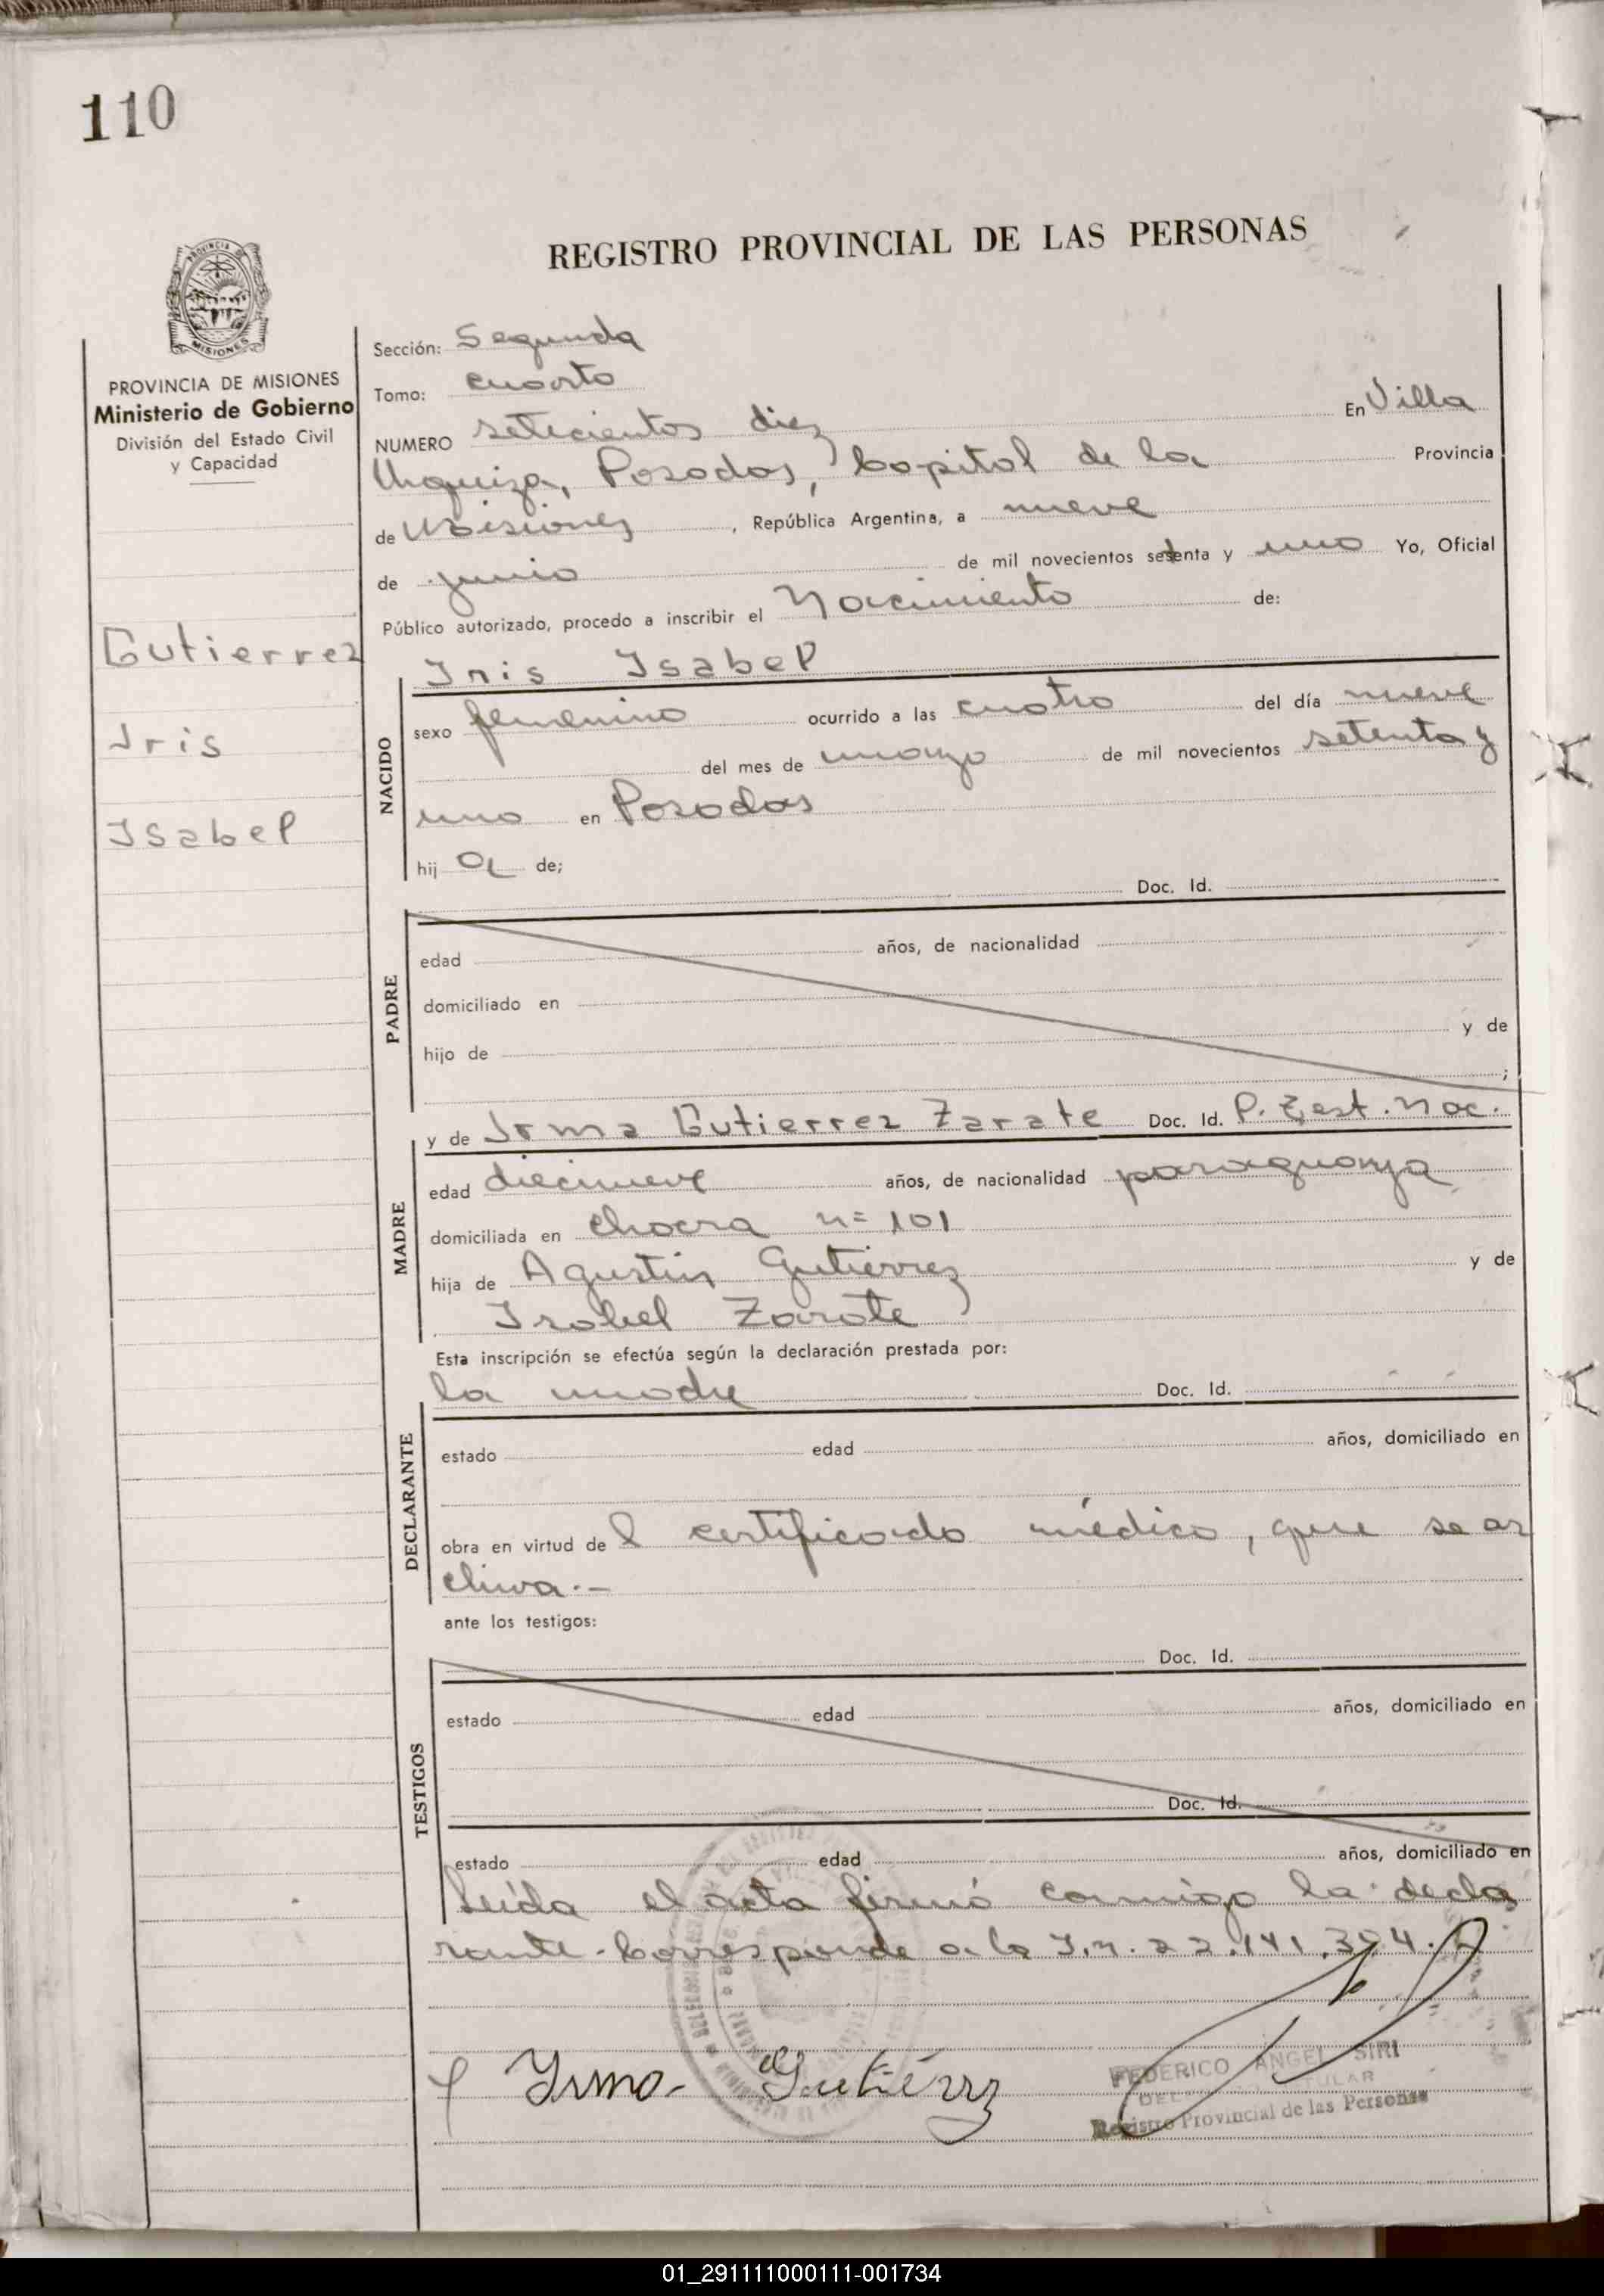 110
REGISTRO PROVINCIAL DE LAS PERSONAS
PROVINCIA DE MISIONES
Ministerio de Gobierno
División del Estado Civil
y Capacidad
Gutierrez
Iris
Isabel
Sección: Segunda
Tomo: cuarto
NUMERO setecientos diez En Villa
Urquiza, Posadas, Capital de la Provincia
de Misiones, República Argentina, a nueve
de junio de mil novecientos setenta y uno Yo, Oficial
Público autorizado, procedo a inscribir el Nacimiento de:
Iris Isabel
NACIDO
sexo femenino ocurrido a las cuatro del día nueve
del mes de marzo de mil novecientos setenta y
uno en Posadas
hija de;
Doc. Id.
PADRE
edad años, de nacionalidad
domiciliado en
hijo de y de
;
y de Irma Gutierrez Zarate Doc. Id. P. Gest. Nac.
MADRE
edad diecinueve años, de nacionalidad paraguaya
domiciliada en chacra n= 101
hija de Agustin Gutiérrez y de
Isabel Zarate
Esta inscripción se efectúa según la declaración prestada por:
la madre Doc. Id.
DECLARANTE
estado edad años, domiciliado en
obra en virtud del certificado médico, que se ar
chiva.-
ante los testigos:
Doc. Id.
TESTIGOS
estado edad años, domiciliado en
Doc. Id.
estado edad años, domiciliado en
Leída el acta firmó conmigo la decla
rante. Corresponde a la I.n. 22.141.
Irma Gutiérrz
FEDERICO ANGEL SIRI
TULAR
Registro Provincial de las Personas
01_291111000111-001734